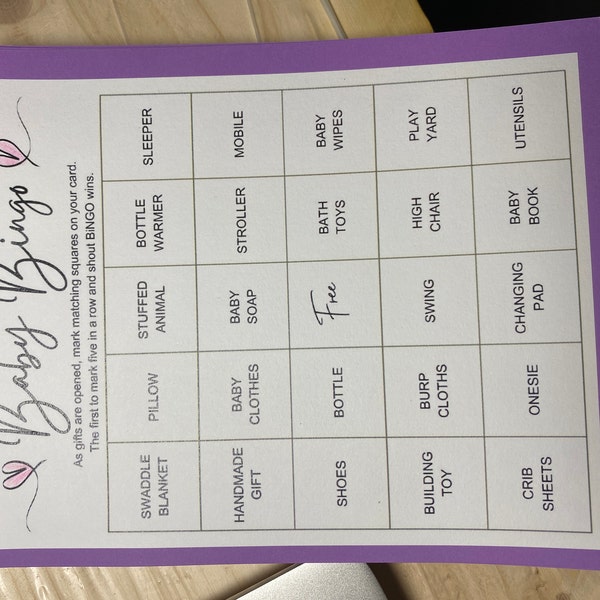 Baby Bingo
As gifts are opened, mark matching squares on your card.
The first to mark five in a row and shout BiNGO wins.
SWADDLE
BLANKET
PILLOW
STUFFED
ANIMAL
BOTTLE
WARMER
SLEEPER
HANDMADE
GIFT
BABY
CLOTHES
BABY
SOAP
STROLLER
MOBILE
SHOES
BOTTLE
Free
BATH
TOYS
BABY
WIPES
BUILDING
TOY
BURP
CLOTHS
SWING
HIGH
CHAIR
PLAY
YARD
CRIB
SHEETS
ONESIE
CHANGING
PAD
BABY
BOOK
UTENSILS